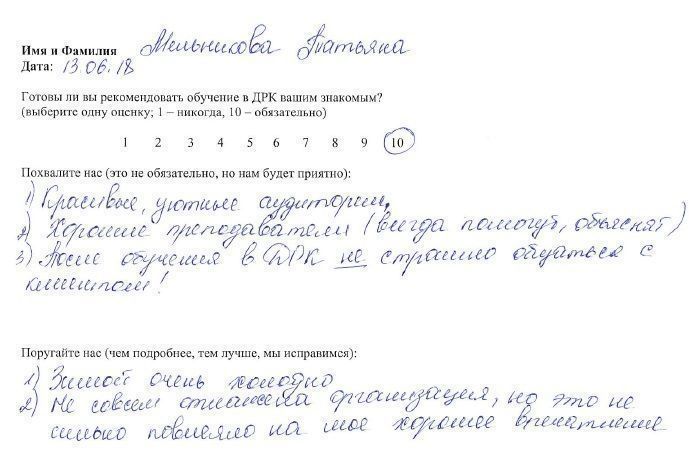 Имя и Фамилия Мельникова Татьяна
Дата: 13.06.18
Готовы ли вы рекомендовать обучение в ДРК вашим знакомым?
(выберите одну оценку; 1 – никогда, 10 – обязательно)
1 2 3 4 5 6 7 8 9 10
Похвалите нас (это не обязательно, но нам будет приятно):
1) Красивые, уютные аудитории.
2) Хорошие преподаватели (всегда помогут, объяснят)
3) После обучения в ДРК не страшно общаться с
клиентом!
Поругайте нас (чем подробнее, тем лучше, мы исправимся):
1) Зимой очень холодно
2) Не совсем отлажена организация, но это не
сильно повлияло на мое хорошее впечатление